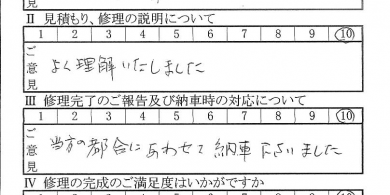 見
Ⅱ 見積もり、修理の説明について
1 2 3 4 5 6 7 8 9 10
ご意見
よく理解いたしました
Ⅲ 修理完了のご報告及び納車時の対応について
1 2 3 4 5 6 7 8 9 10
ご意見
当方の都合にあわせて納車下さいました
Ⅳ 修理の完成のご満足度はいかがですか